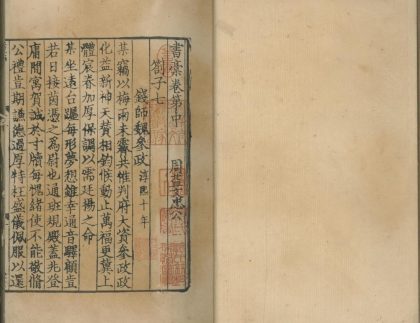 書稾卷第中
周益文忠公
劄子七
錢師魏參政 淳熙十年
某竊以梅雨未霽共惟判府大資參政
化益新神天賛相鈞候動止萬福更冀上
體宸眷加厚保調以需廷揚之命
某坐遠台躔每形夢想雖幸通音驛顧豈
若日接茵憑之為尉也通班規殿蓋先登
庸間寓賀誠於寸牘每愧緒使不能敬脩
公禮豈期謙德過厚特枉盛儀佩服以還